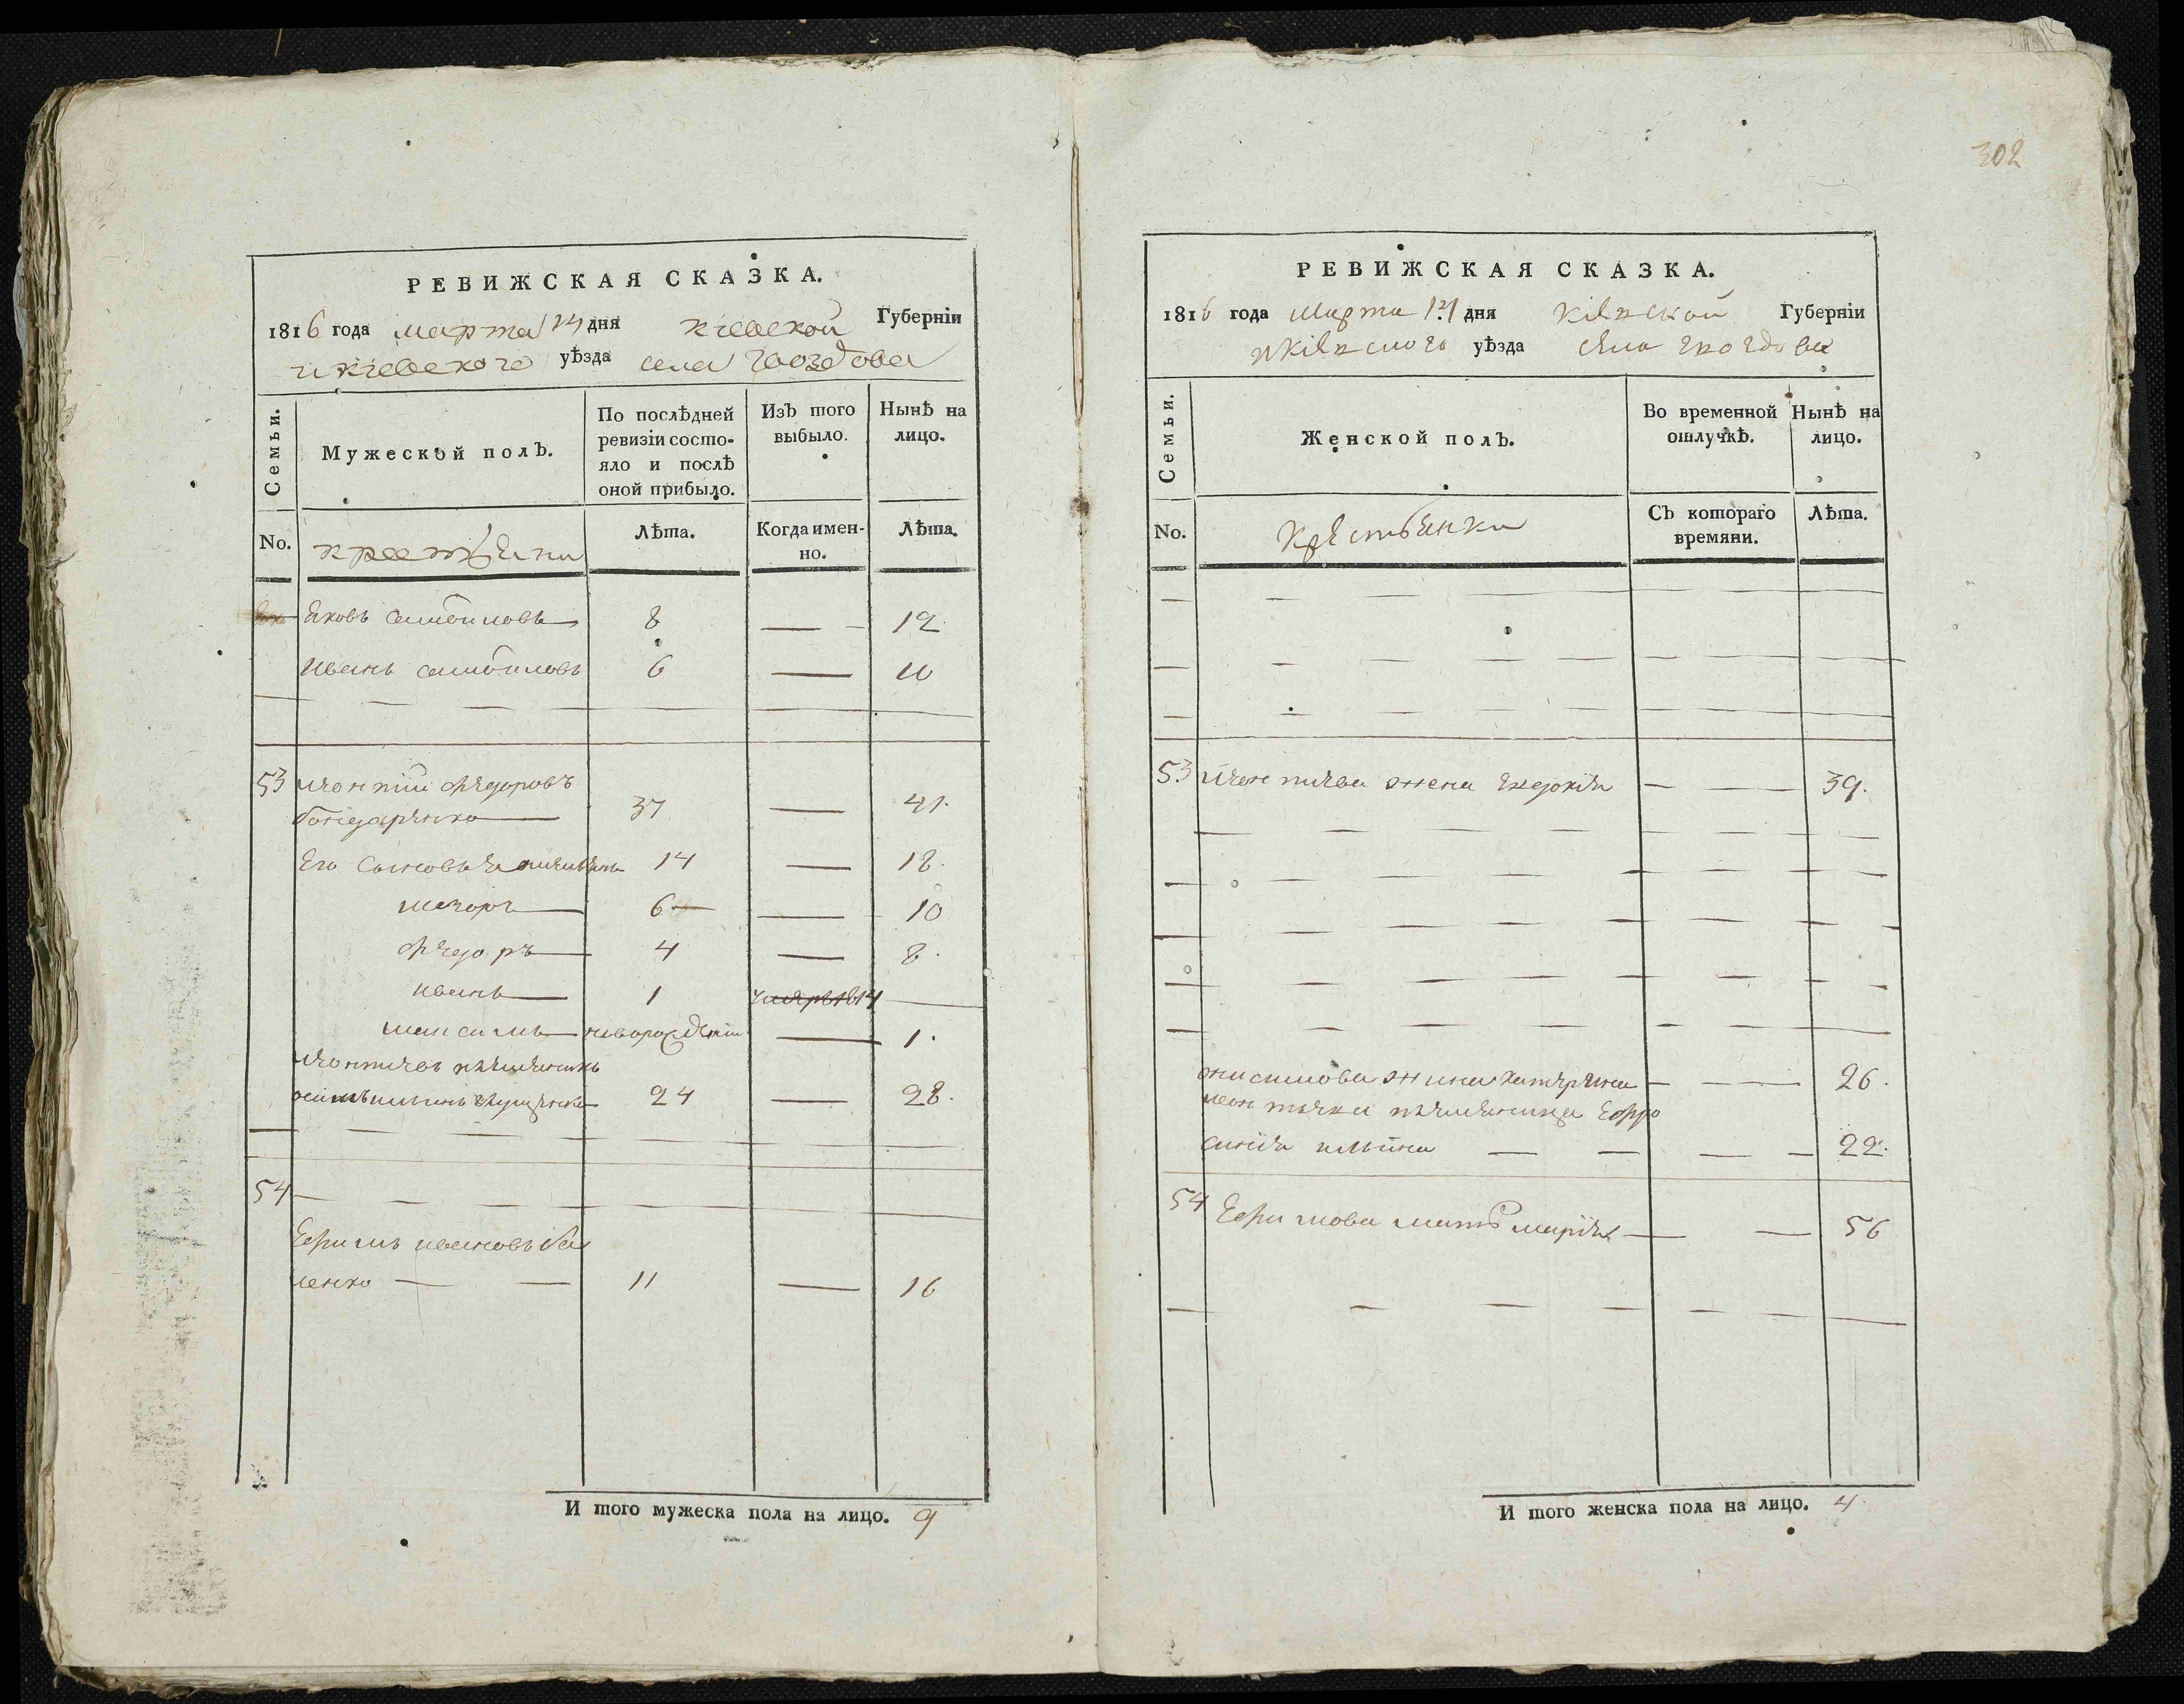 302
РЕВИЖСКАЯ СКАЗКА.
1816 года марта 14 дня кіевской Губерніи
и кіевского уѣзда села гвоздова
Семьи.
Мужеской полъ.
По послѣдней ревизіи состо-
яло и послѣ
оной прибыло.
Изъ того
выбыло.
Нынѣ на
лицо.
No.
крестяни
Лѣта.
Когда имен-
но.
Лѣта.
Яковъ самойловъ 8 — 12
Иванъ самойловъ 6 — 10
53 леонтій федоровъ
бондаренко 37 — 41.
Его сыновья 14 — 18.
6 — 10
федоръ 4 — 8.
иванъ 1 1814 —
максимъ новорожденій — 1.
леонтіевъ племенникъ
24 — 28.
54
Ефимъ ивановъ
ленко — — 11 — 16
И того мужеска пола на лицо. 9
РЕВИЖСКАЯ СКАЗКА.
1816 года марта 14 дня кіевской Губерніи
и кіевского уѣзда села гвоздова
Семьи.
Женской полъ.
Во временной
отлучкѣ.
Нынѣ на
лицо.
No.
Крестьянки
Съ котораго
времяни.
Лѣта.
53 леонтіева жена евдокія — — 39.
онисимова жена катерина — — 26.
племенница Ефро
синія — — — — 22.
54 Ефимова мать марія — — 56
И того женска пола на лицо. 4